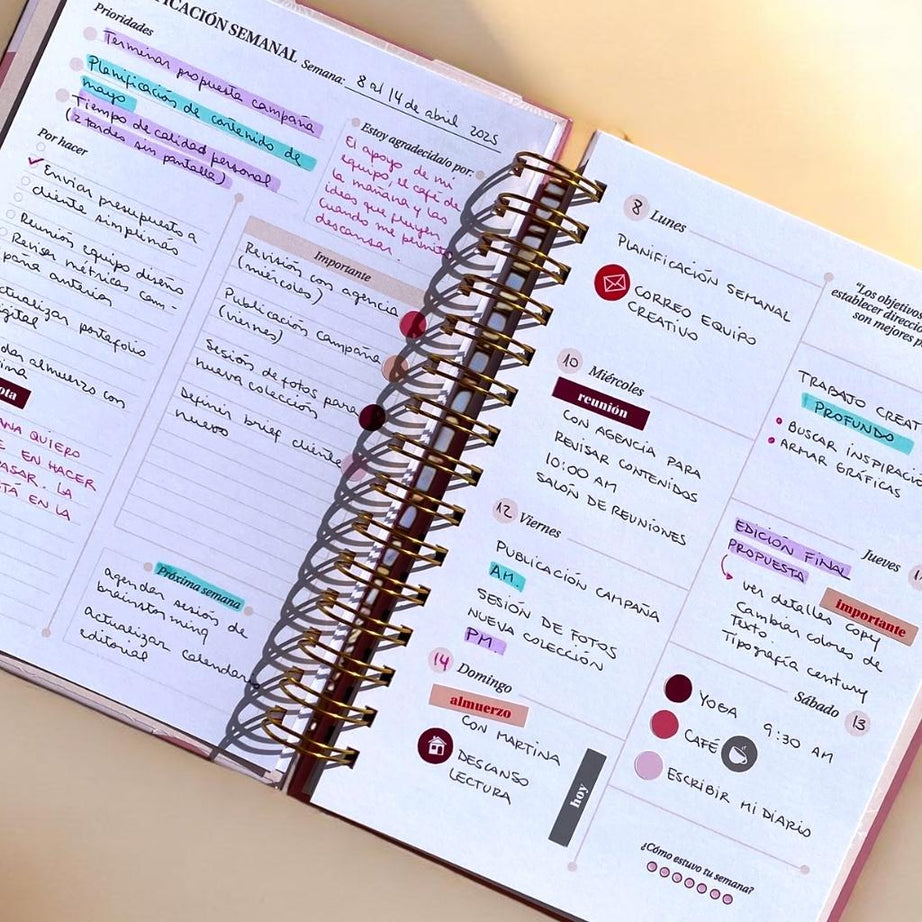 ICACIÓN SEMANAL
Semana: 8 al 14 de abril 2025
Prioridades
Terminar propuesta campaña
Planificación de contenido de
mayo
Tiempo de calidad personal
(2 tardes sin pantalla)
Estoy agradecida/o por:
El apoyo de mi
equipo, el café de
la mañana y las
ideas que fluyen
cuando me permito
descansar.
Por hacer
Enviar presupuesto a
cliente simplinés
Reunión equipo diseño
Revisar métricas cam-
paña anterior
ctualizar portafolio
igital
dar almuerzo con
ina
ota
ANA QUIERO
E EN HACER
PASAR. LA
TÁ EN LA
Importante
Revisión con agencia
(miércoles)
Publicación campaña
(viernes)
Sesión de fotos para
nueva colección
Definir brief cliente
nuevo
Próxima semana
agendar sesión de
brainstorming
actualizar calendario
editorial
8 Lunes
PLANIFICACIÓN SEMANAL
CORREO EQUIPO
CREATIVO
"Los objetivos
establecer direcci
son mejores p
TRABAJO CREAT
PROFUNDO
BUSCAR INSPIRACIÓ
ARMAR GRÁFICAS
10 Miércoles
reunión
CON AGENCIA PARA
REVISAR CONTENIDOS
10:00 AM
SALÓN DE REUNIONES
Jueves 1
EDICIÓN FINAL
PROPUESTA
importante
ver detalles copy
Cambiar colores de
Texto.
Tipografía century
12 Viernes
PUBLICACIÓN CAMPAÑA
AM.
SESIÓN DE FOTOS
NUEVA COLECCIÓN
PM.
Sábado 13
YOGA 9:30 AM
CAFÉ
ESCRIBIR MI DIARIO
14 Domingo
almuerzo
CON MARTINA
DESCANSO
LECTURA
hoy
¿Cómo estuvo tu semana?